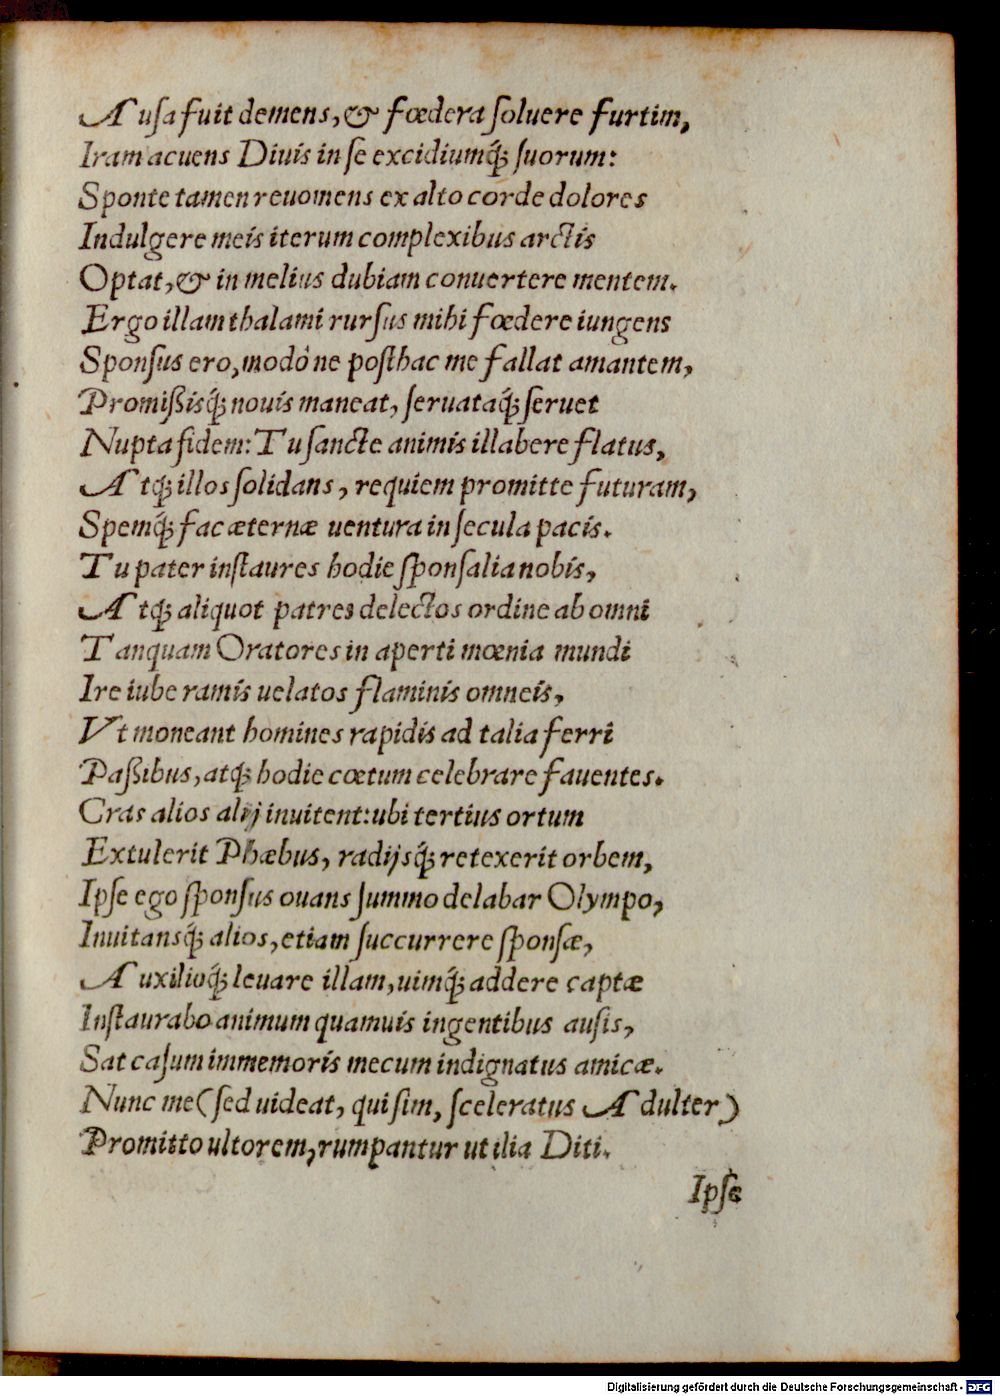 Ausa fuit demens, & fœdera soluere furtim,
Iram acuens Diuis in se excidiumq́; suorum:
Sponte tamen reuomens ex alto corde dolores
Indulgere meis iterum complexibus arctis
Optat, & in melius dubiam conuertere mentem.
Ergo illam thalami rursus mihi fœdere iungens
Sponsus ero, modò ne posthac me fallat amantem,
Promißisq́; nouis maneat, seruataq́; seruet
Nupta fidem: Tu sancte animis illabere flatus,
Atq́; illos solidans, requiem promitte futuram,
Spemq́; fac æternæ uentura in secula pacis.
Tu pater instaures hodie sponsalia nobis,
Atq́; aliquot patres delectos ordine ab omni
Tanquam Oratores in aperti mœnia mundi
Ire iube ramis uelatos flaminis omneis,
Vt moneant homines rapidis ad talia ferri
Paßibus, atq́; hodie cœtum celebrare fauentes.
Cras alios alij inuitent: ubi tertius ortum
Extulerit Phæbus, radijsq́; retexerit orbem,
Ipse ego sponsus ouans summo delabar Olympo,
Inuitansq́; alios, etiam succurrere sponsæ,
Auxilioq́; leuare illam, uimq́; addere captæ
Instaurabo animum quamuis ingentibus ausis,
Sat casum immemoris mecum indignatus amicæ.
Nunc me (sed uideat, qui sim, sceleratus Adulter)
Promitto ultorem, rumpantur ut ilia Diti.
Ipse
Digitalisierung gefördert durch die Deutsche Forschungsgemeinschaft - DFG